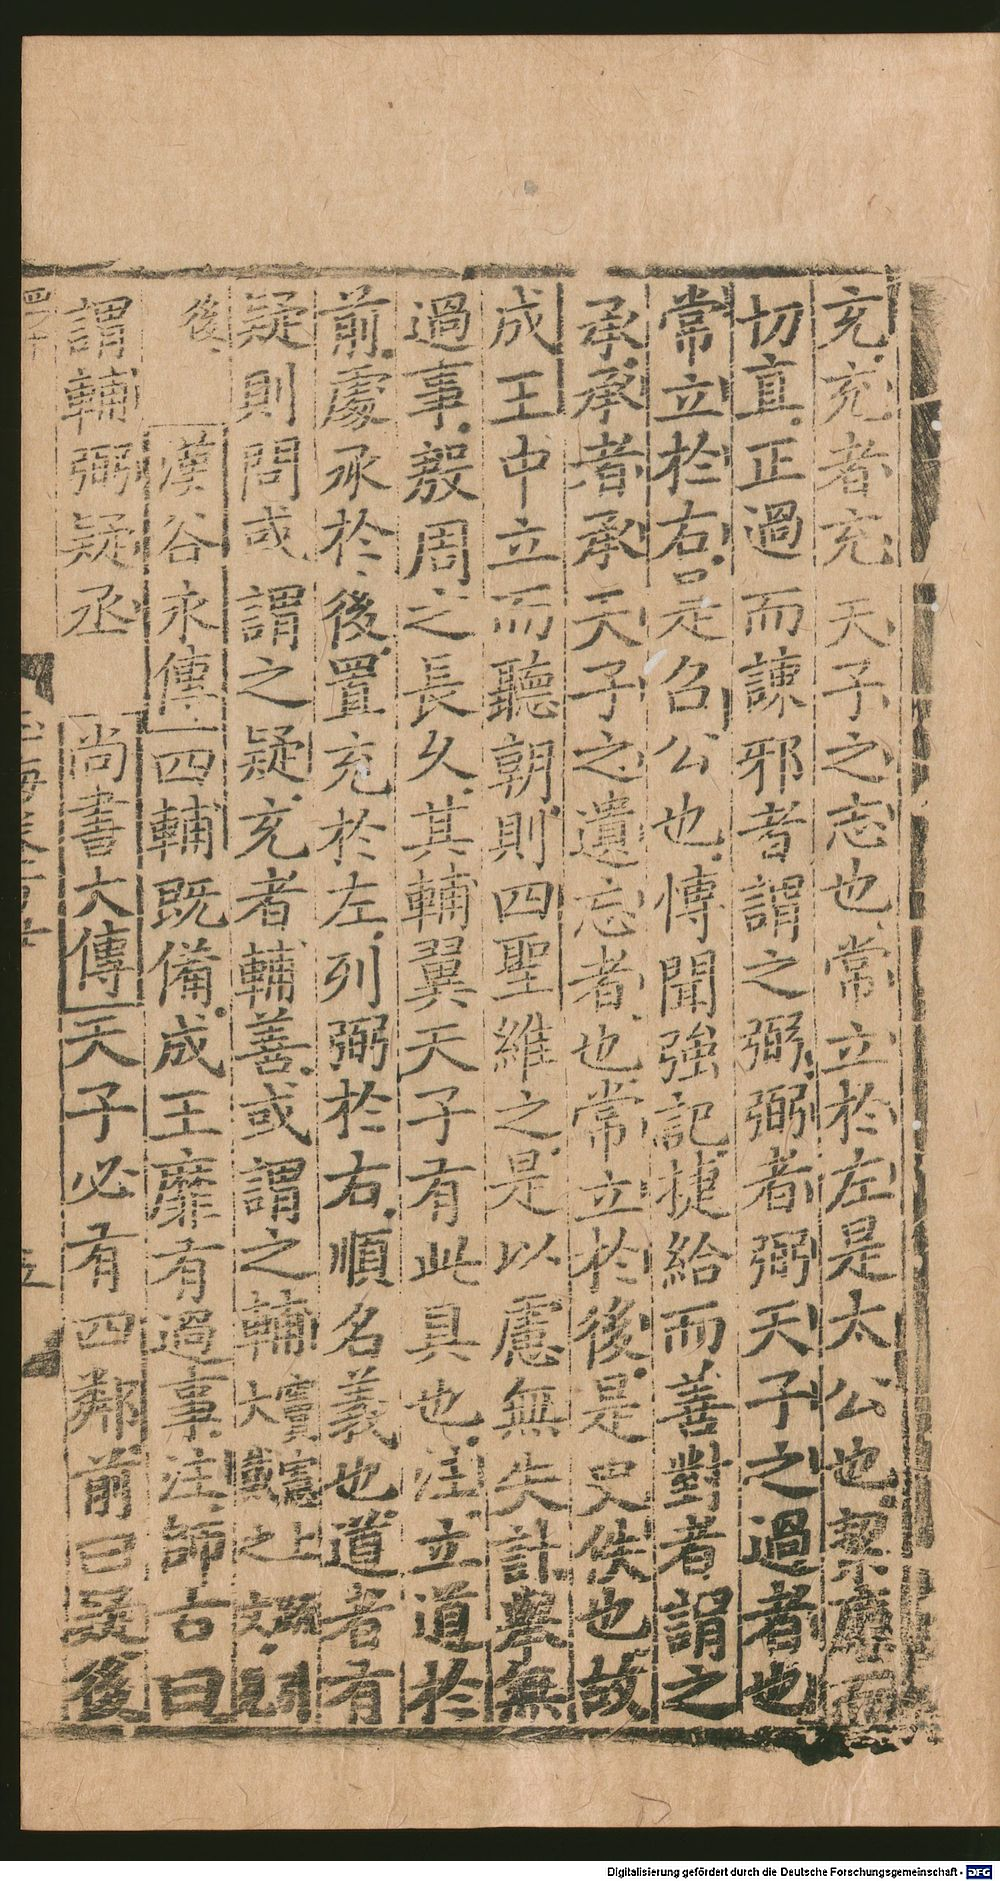 充充者充天子之志也常立於左是太公也潔廉而
切直正過而諫邪者謂之弼弼者弼天子之過者也
常立於右是召公也慱聞強記捷給而善對者謂之
承承者承天子之遺忘者也常立於後是史佚也故
成王中立而聽朝則四聖維之是以慮無失計舉無
過事殷周之長久其輔翼天子有此具也注立道於
前處承於後置充於左列弼於右順名義也道者有
疑則問或謂之疑充者輔善或謂之輔
後漢谷永傳四輔既備成王靡有過事注師古曰
謂輔弼疑丞尚書大傳天子必有四鄰前曰疑後
Digitalisierung gefördert durch die Deutsche Forschungsgemeinschaft - DFG